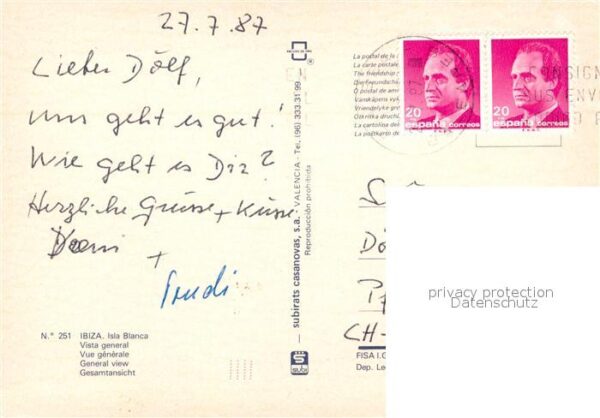 27.7.87
Lieber Dölf,
uns geht es gut!
Wie geht es Dir?
Herzliche Grüsse + Küsse
+
Trudi
N.° 251 IBIZA. Isla Blanca
Vista general
Vue générale
General view
Gesamtansicht
subirats casanovas, s.a. - VALENCIA - Tel. (96) 333 31 99
Reproducción prohibida
subi
La postal de la
La carte postale
The friendship
Die Freundschaf
O postal de am
Vriendelyke gr
La cartolina del
La postkarto de
20
españa correos
20
españa correos
CH-
FISA I.G
Dep. Le
privacy protection
Datenschutz